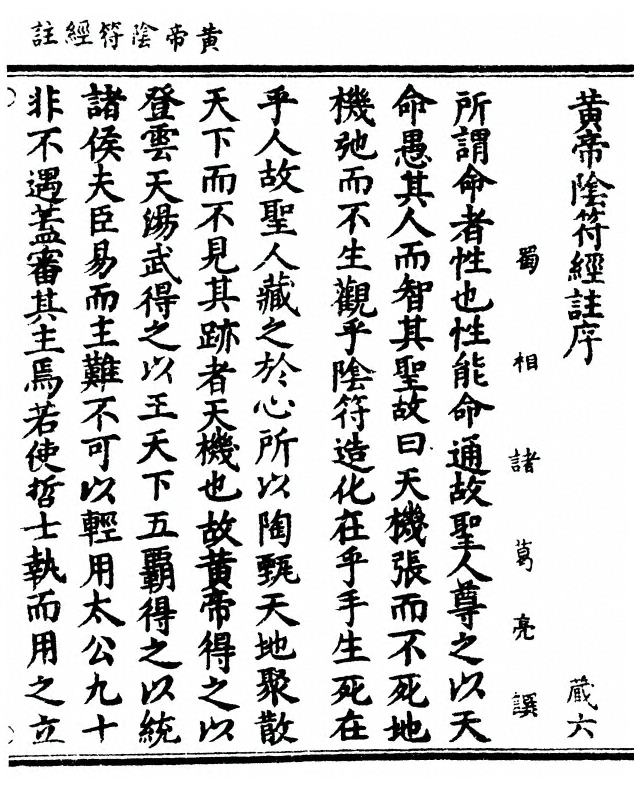 黃帝陰符經註
黃帝陰符經註序　藏六
蜀相諸葛亮譔
所謂命者性也性能命通故聖人尊之以天
命愚其人而智其聖故曰天機張而不死地
機弛而不生觀乎陰符造化在乎手生死在
乎人故聖人藏之於心所以陶甄天地聚散
天下而不見其跡者天機也故黃帝得之以
登雲天湯武得之以王天下五霸得之以統
諸侯夫臣易而主難不可以輕用太公九十
非不遇蓋審其主焉若使哲士執而用之立